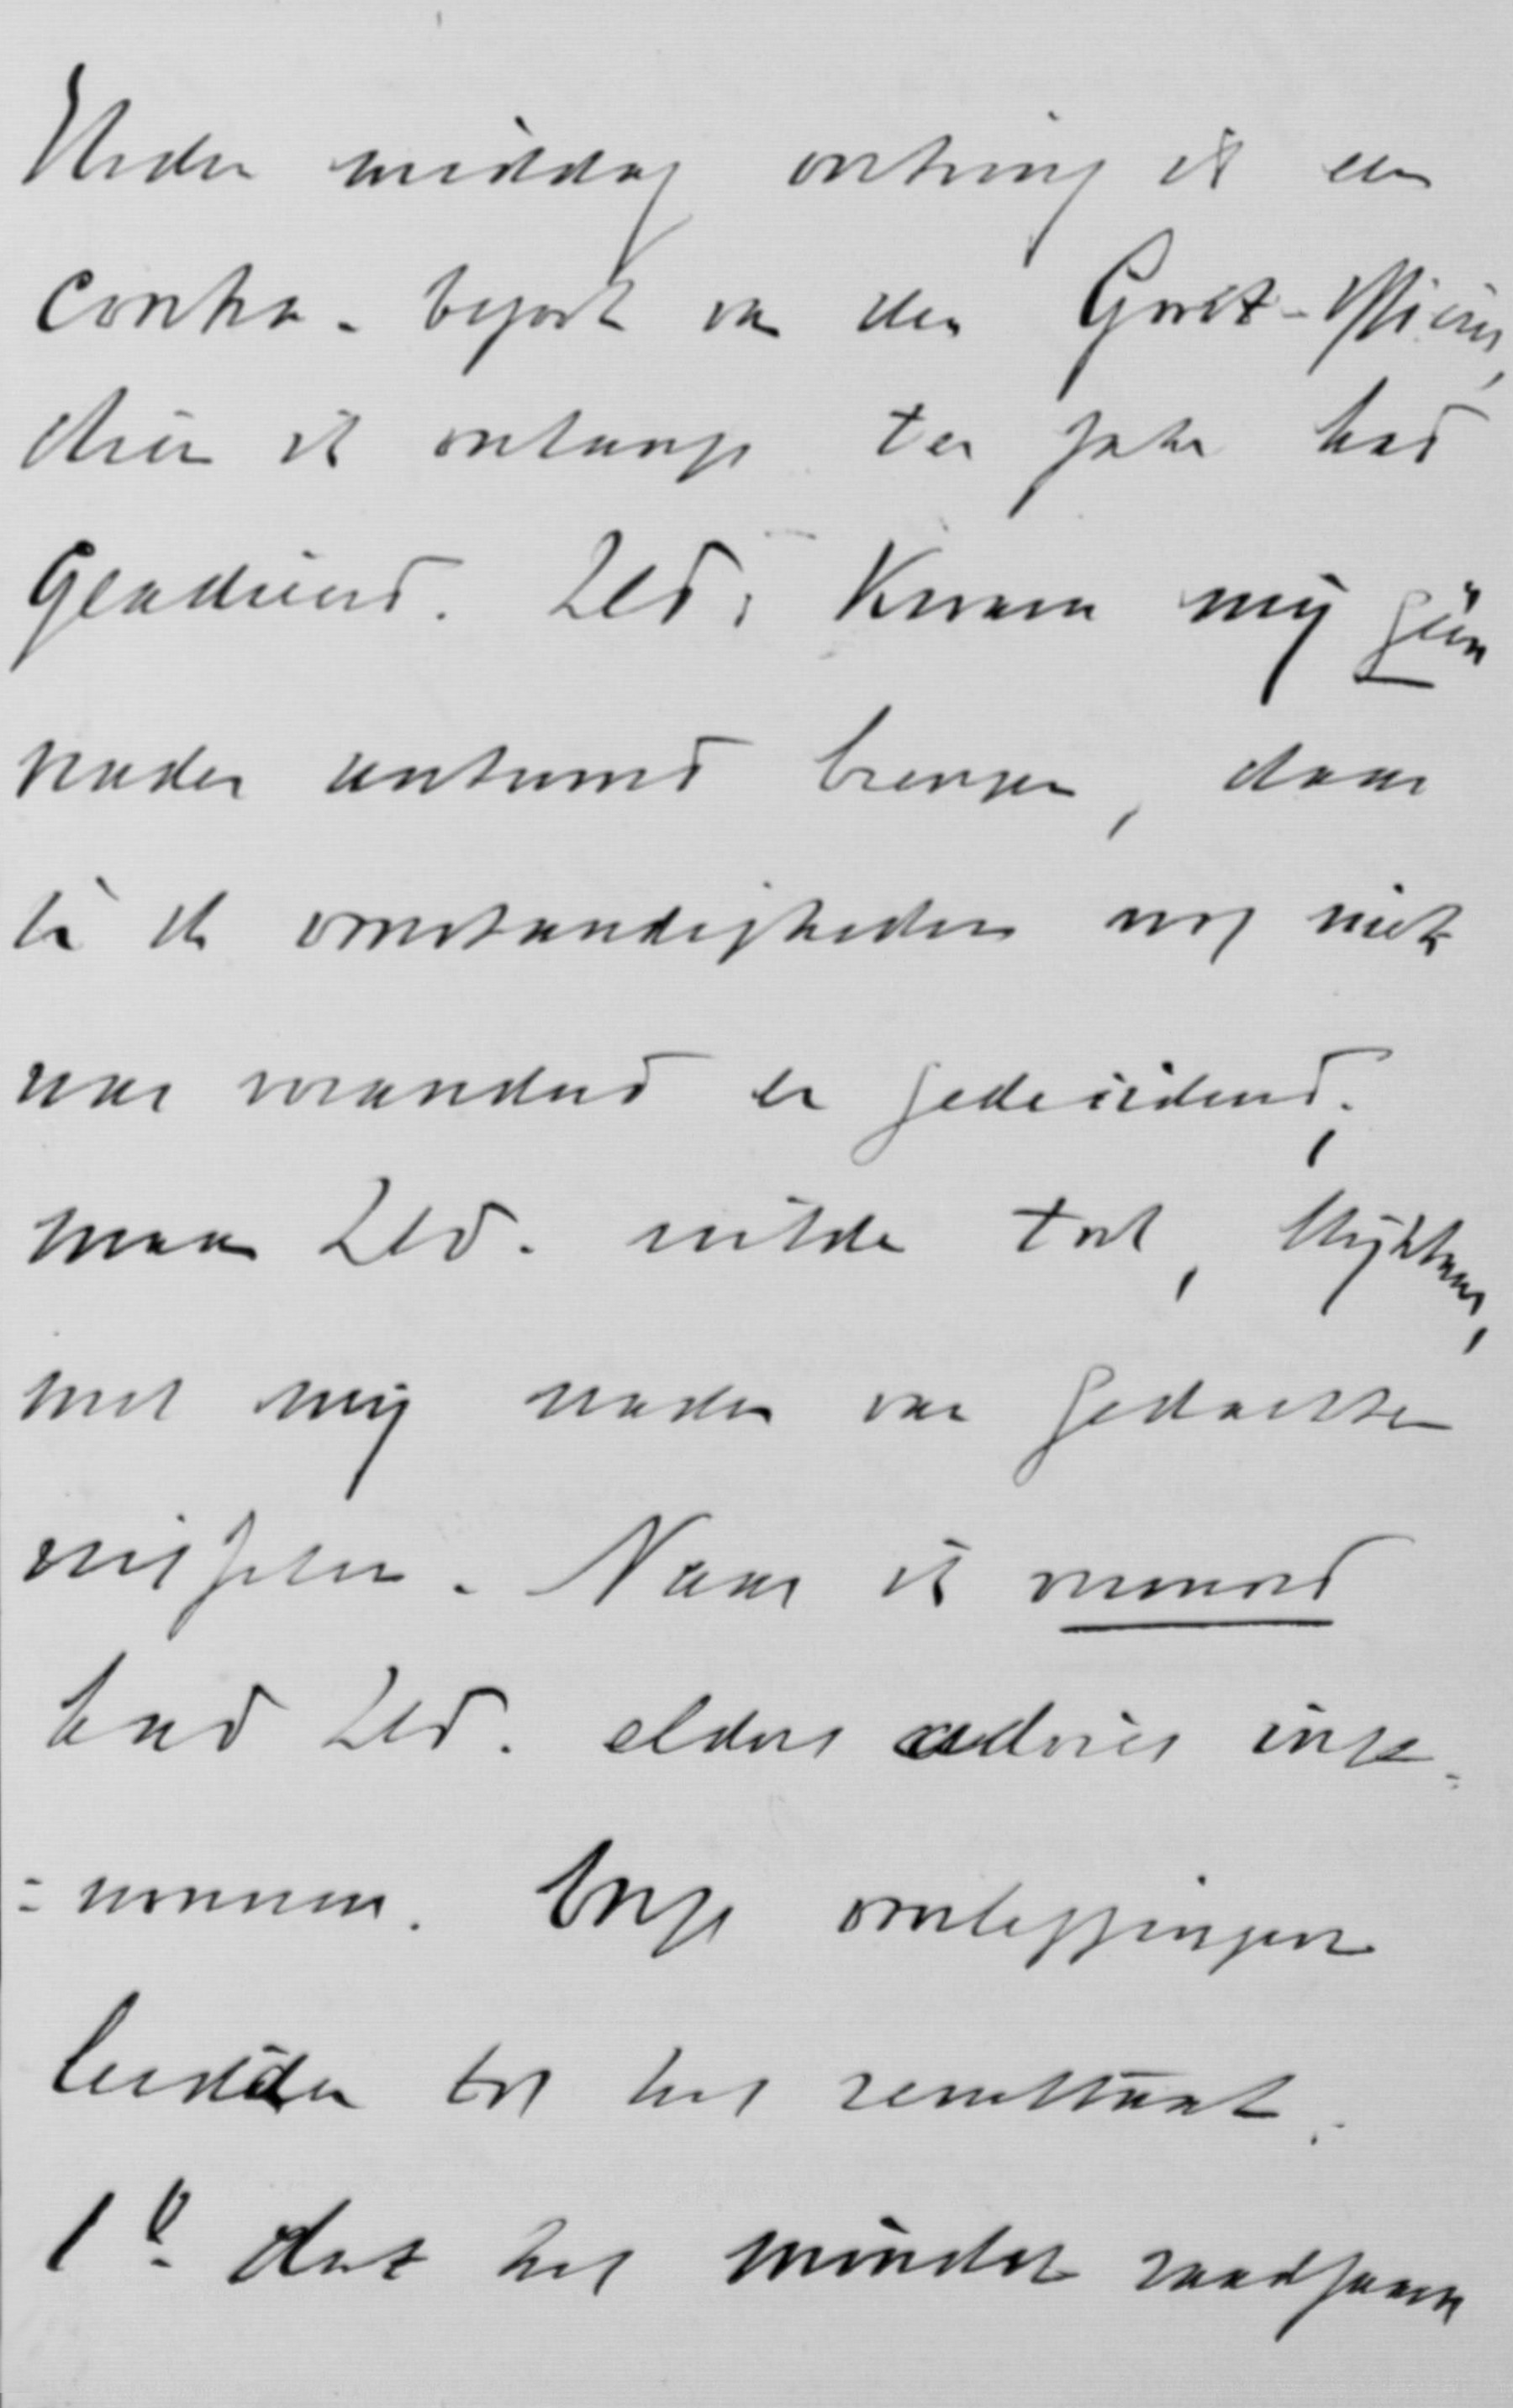 Heden middag ontving ik een
contra-bezoek van den Groot-Officier,
dien ik onlangs ter zake had
geadieerd. ZEd. kwam mij geen
nader antwoord brengen, daar
de omstandigheden nog niet
was veranderd en gedecideerd;
maar ZEd. wilde toch, blijkbaar,
met mij nader van gedachten
wisselen. Naar ik vernam
had ZEd. elders advies inge-
=nomen. Onze overleggingen
leidden tot het resultaat:
1º dat het minder raadzaam